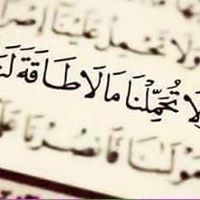 وَلَا تَحْمِلْ عَلَيْنَا إِصْرًا
وَلَا تُحَمِّلْنَا مَا لَا طَاقَةَ لَنَا
مَوْلَىٰنَا فَٱنصُرْنَا عَلَى